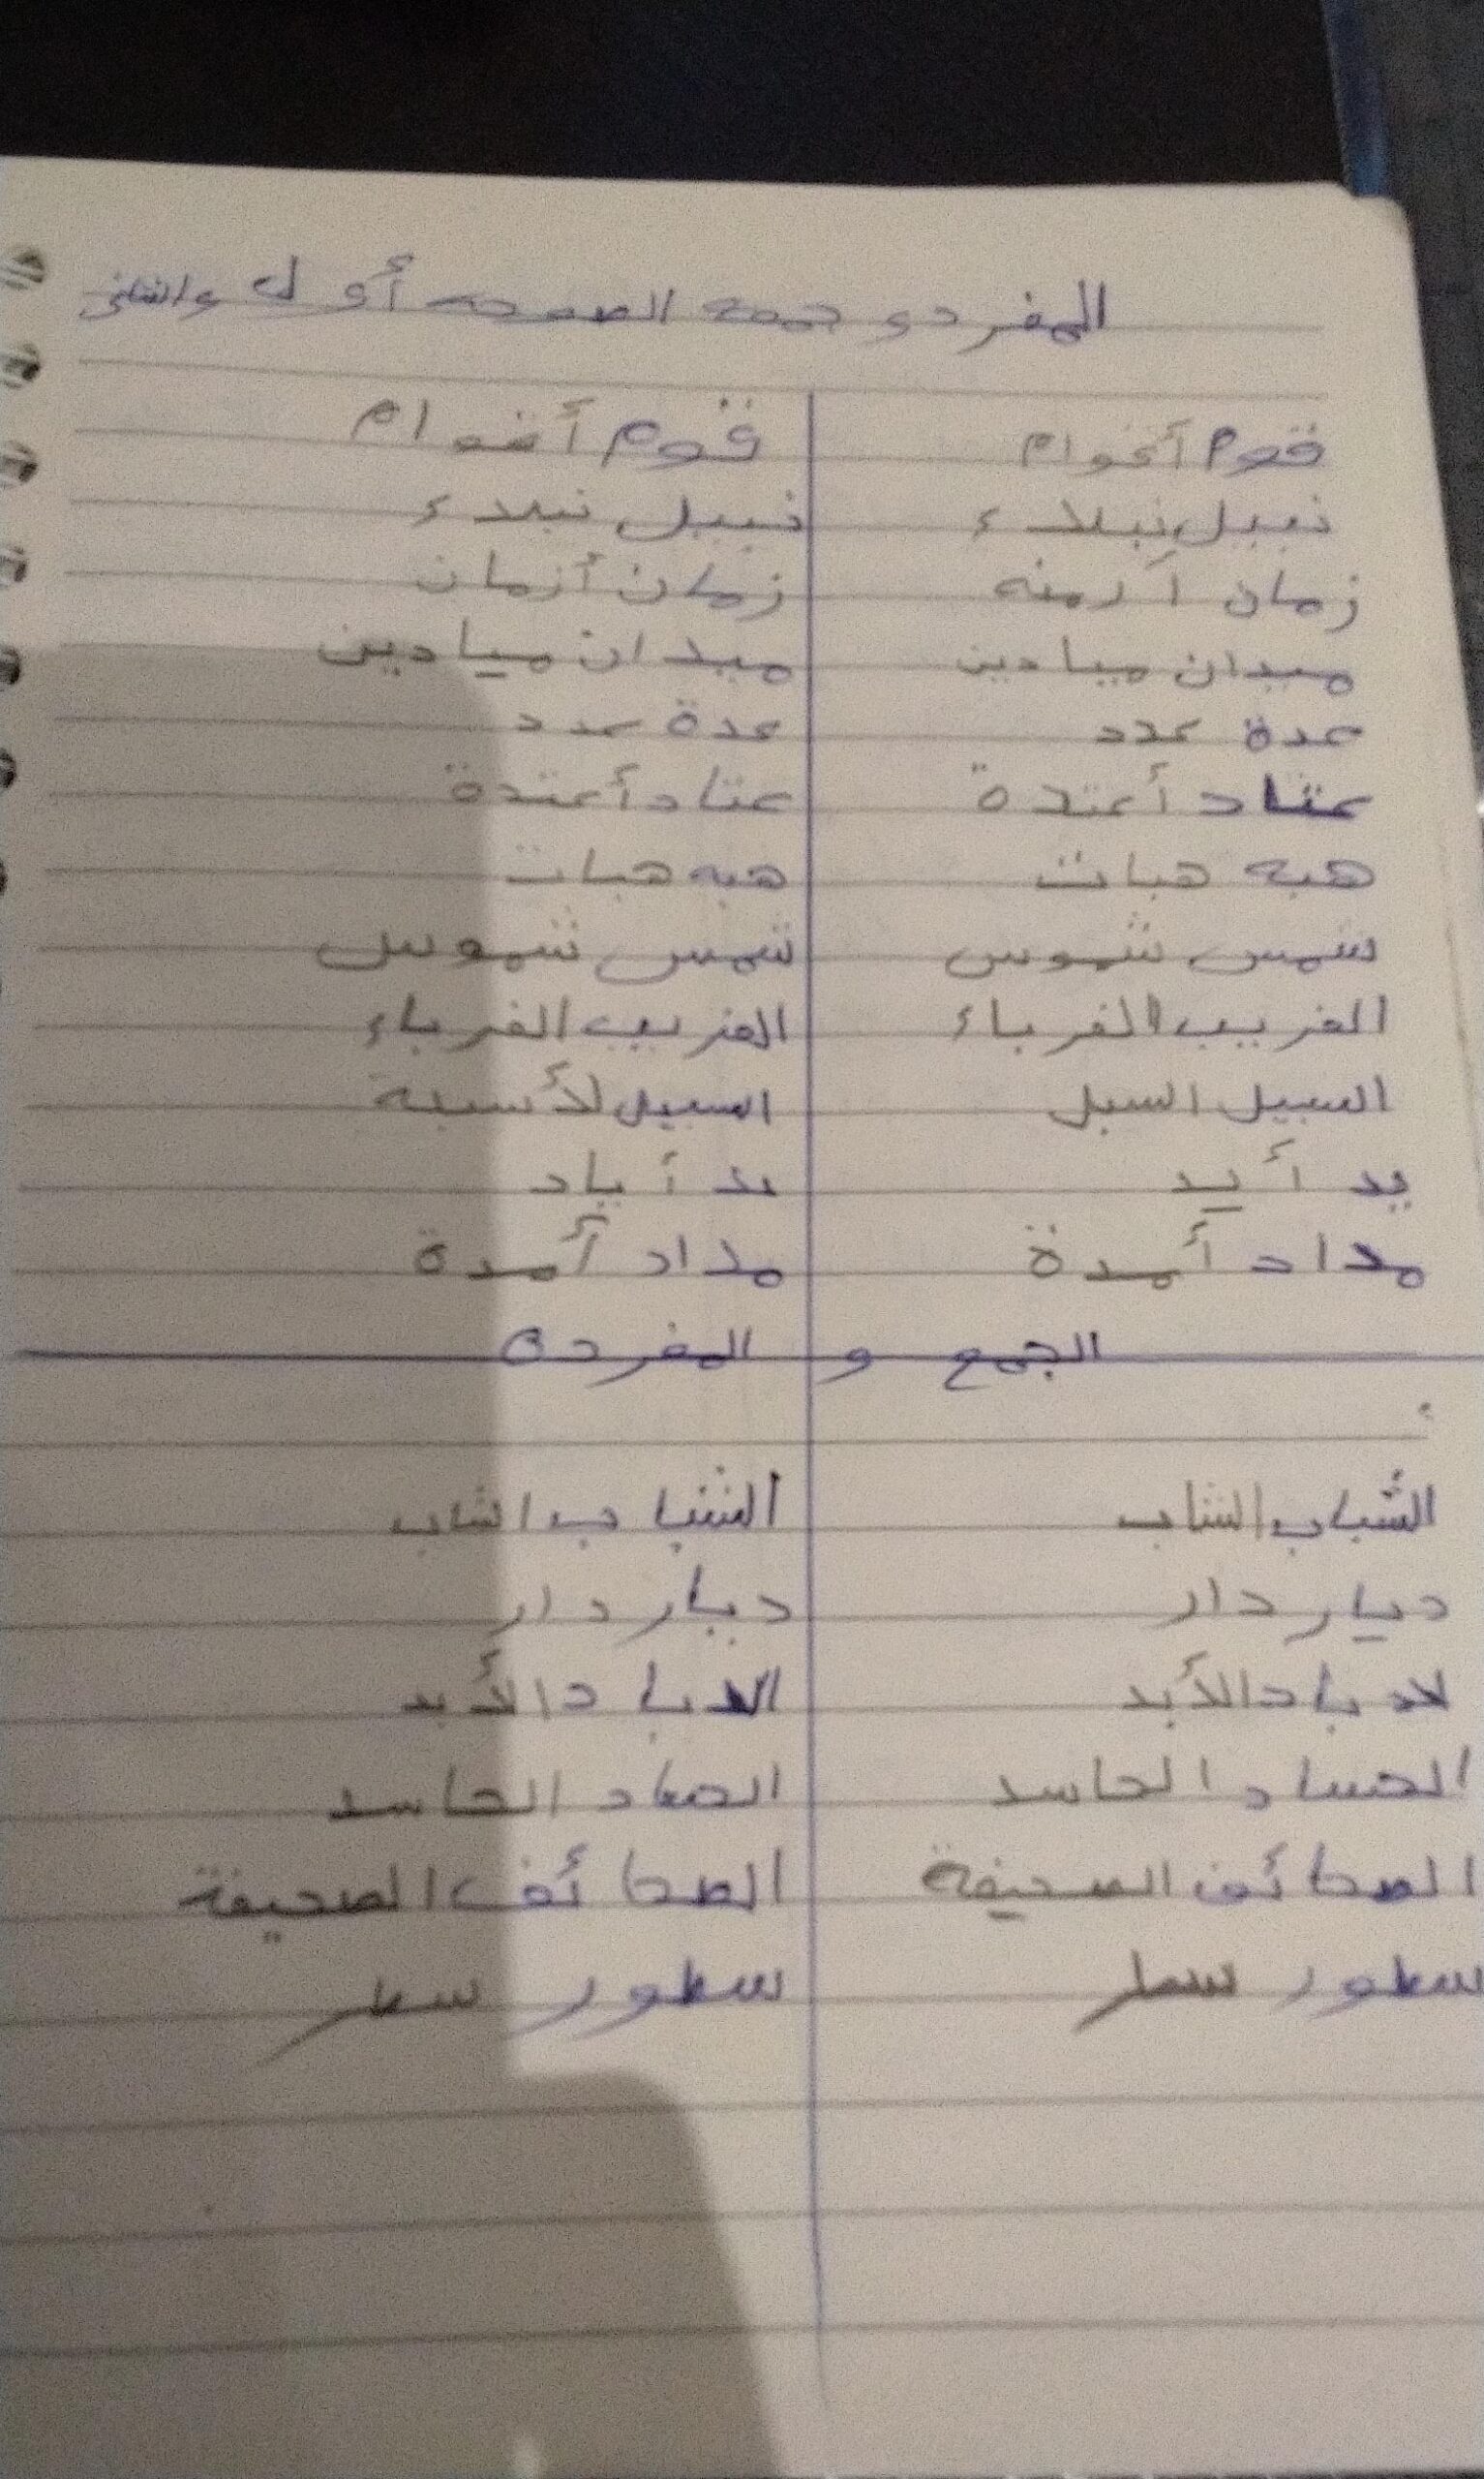 المفرد و جمعه الصفحه أول والثاني
قوم أقوام قوم أقوام
نبيل نبلاء نبيل نبلاء
زمان أزمنه زمان أزمان
ميدان ميادين ميدان ميادين
عدة عدد عدة عدد
عتاد أعتدة عتاد أعتدة
هبه هبات هبه هبات
شمس شموس شمس شموس
الغريب الغرباء الغريب الغرباء
السبيل السبل السبيل الأسبلة
يد أيد يد أياد
مداد أمدة مداد أمدة
الجمع و المفرده
الشباب الشاب الشباب الشاب
ديار دار ديار دار
الأبد الأبد
الحساد الحاسد الحساد الحاسد
الصحائف الصحيفة الصحائف الصحيفة
سطور سطر سطور سطر